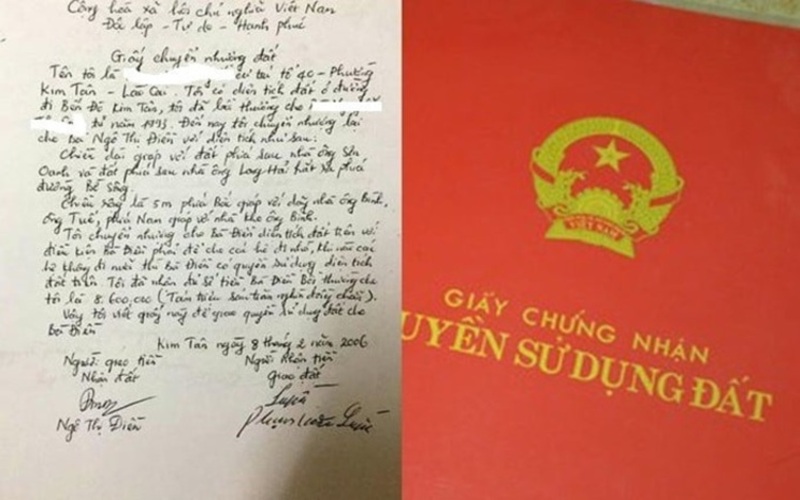 Cộng hòa xã hội chủ nghĩa Việt Nam
Độc lập - Tự do - Hạnh phúc
Giấy chuyển nhượng đất
Tên tôi là cư trú tổ 40 - Phường
Kim Tân - Lào Cai. Tôi có diện tích đất ở đường
đi Bến Đá Kim Tân, tôi đã bồi thường cho
từ năm 1993. Đến nay tôi chuyển nhượng lại
cho Bà Ngô Thị Điền với diện tích như sau:
Chiều dài giáp với đất phía sau nhà ông Sơn
Oanh và đất phía sau nhà ông Long Hải hắt ra phía
đường bờ sông.
Chiều rộng là 5m phía Bắc giáp với dãy nhà ông Bình,
ông Tuế, phía Nam giáp với nhà kho ông Bình.
Tôi chuyển nhượng cho Bà Điền diện tích đất trên với
điều kiện Bà Điền phải để cho các hộ đi nhờ, khi nào các
hộ không đi nữa thì Bà Điền có quyền sử dụng diện tích
đất trên. Tôi đã nhận đủ số tiền Bà Điền Bồi thường cho
tôi là 8.600.000 (Tám triệu sáu trăm nghìn đồng chẵn).
Vậy tôi viết giấy này để giao quyền sử dụng đất cho
Bà Điền
Kim Tân ngày 8 tháng 2 năm 2006
Người giao tiền Người nhận tiền
Nhận đất Giao đất
Ngô Thị Điền
VIỆT NAM
GIẤY CHỨNG NHẬN
UYỀN SỬ DỤNG ĐẤT